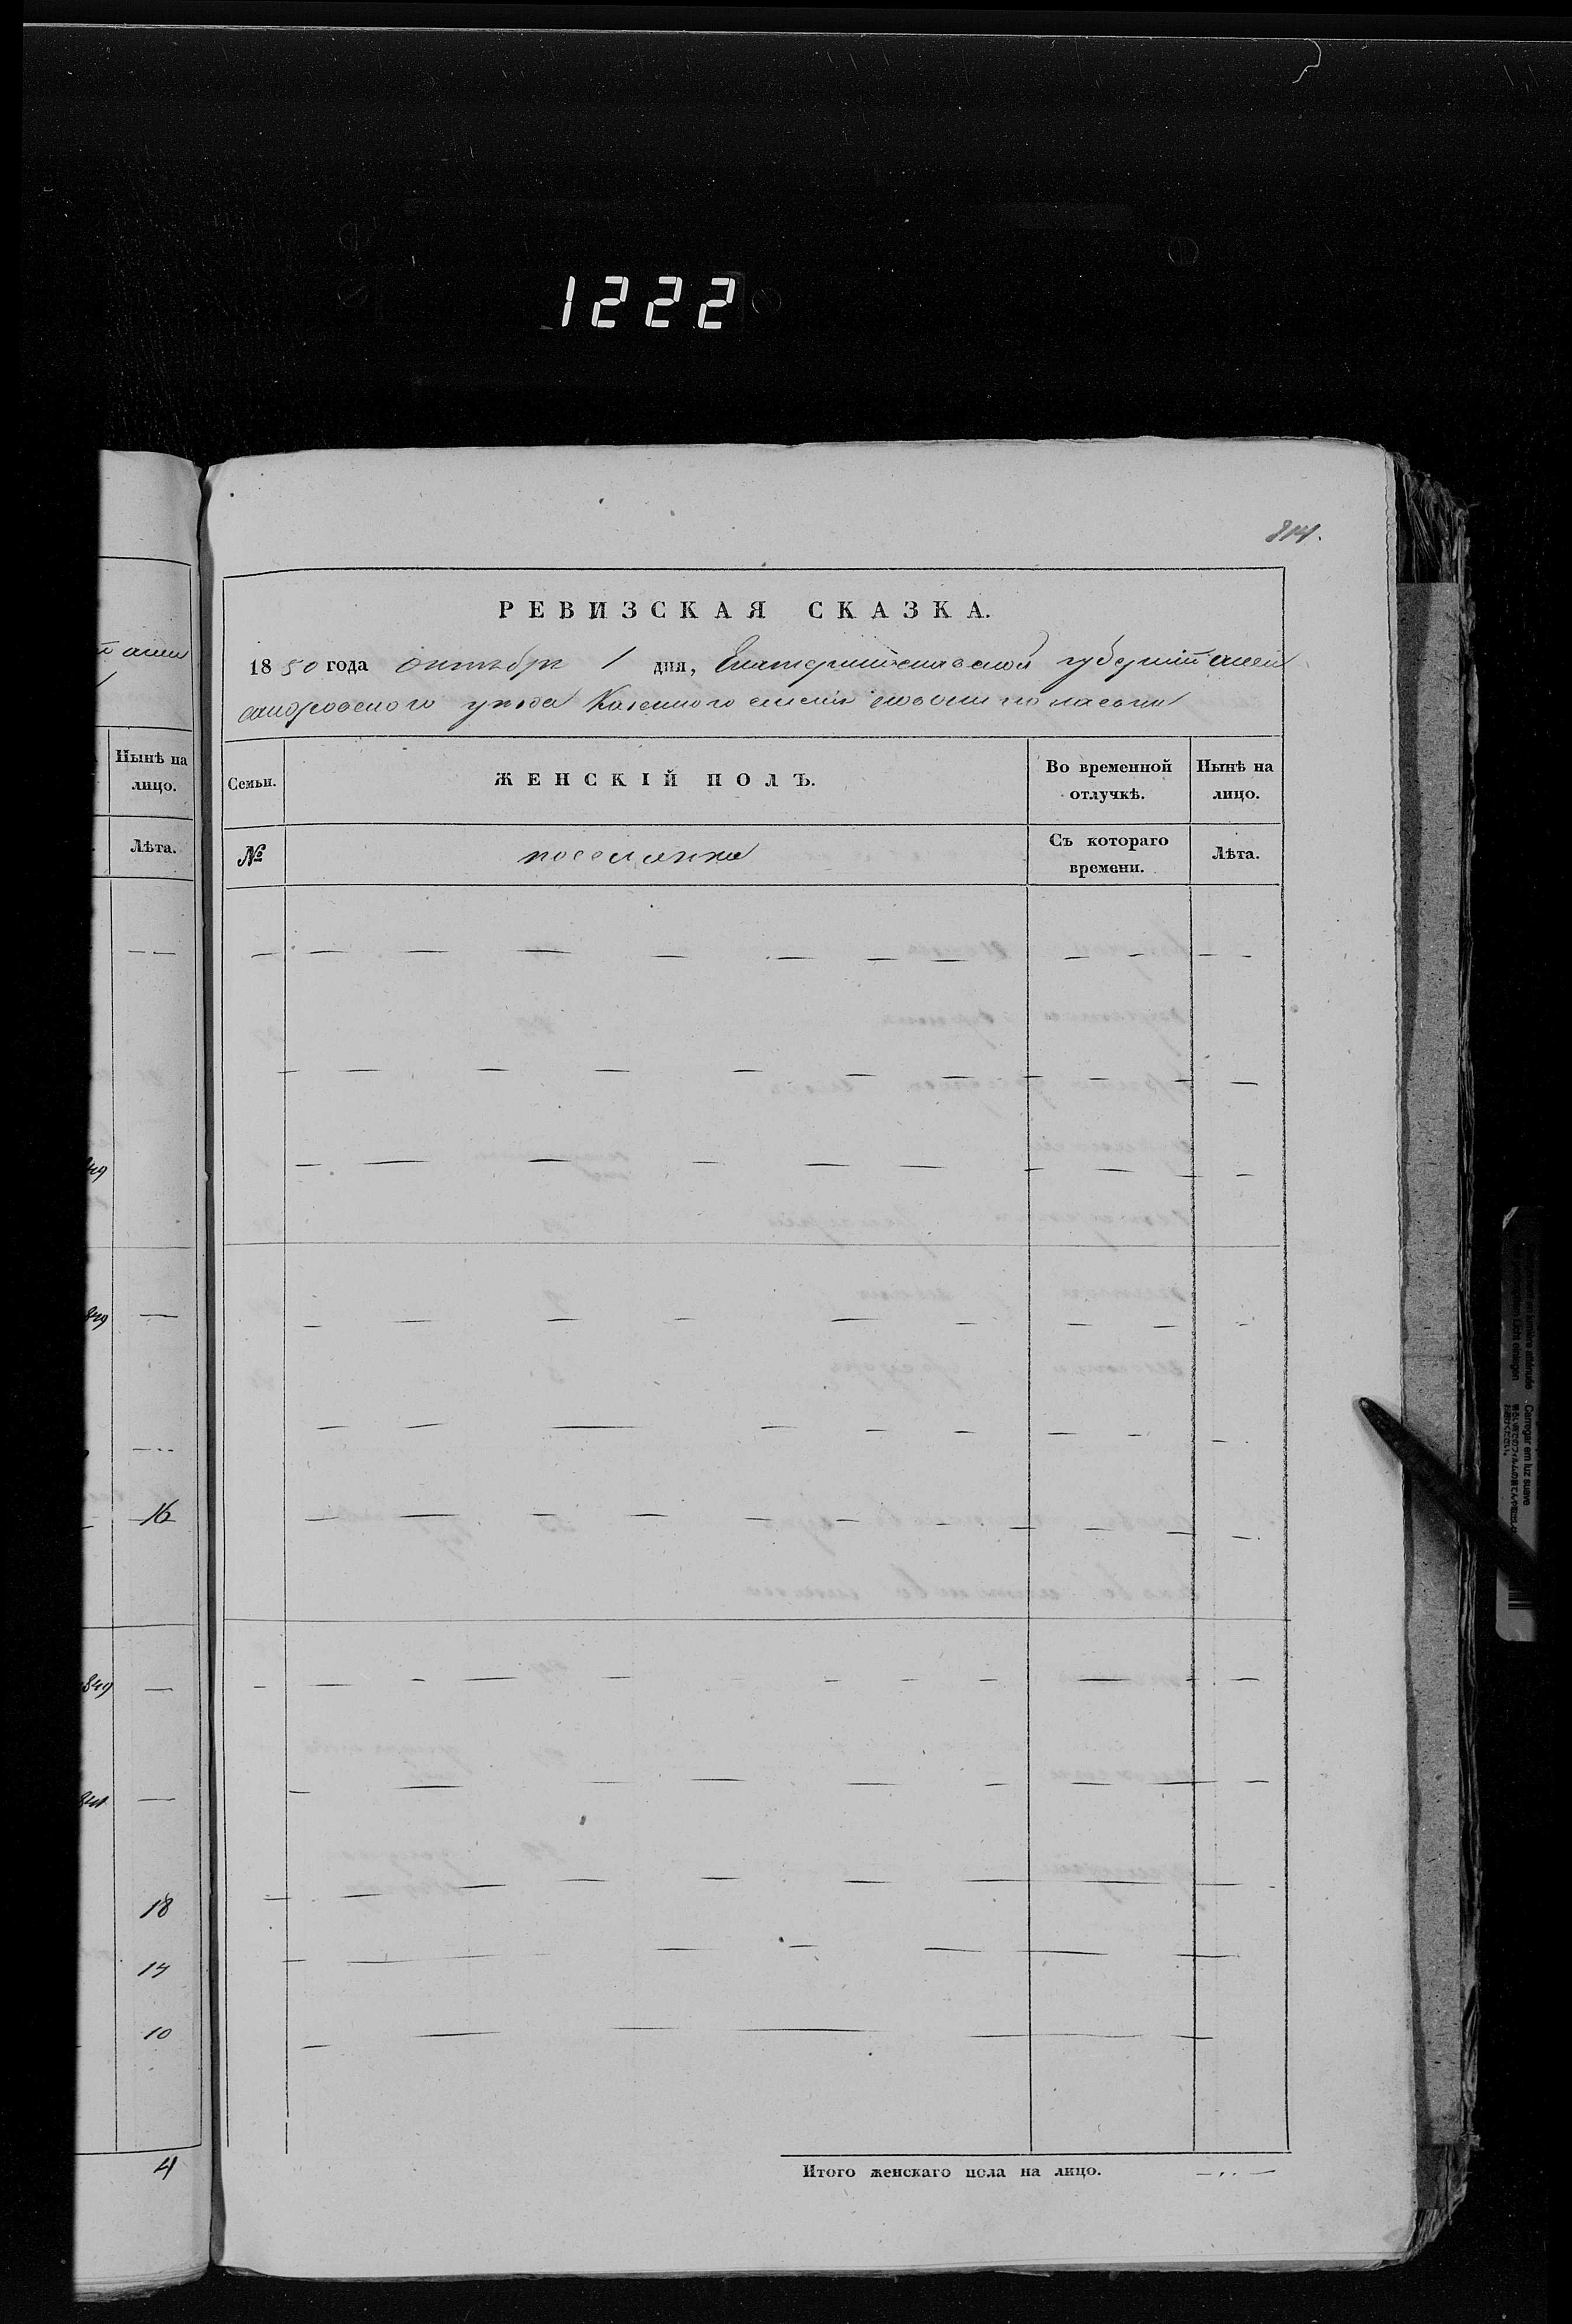 1222
814.
РЕВИЗСКАЯ СКАЗКА.
1850 года октября 1 дня, Екатеринославской губернiи Алек
сандровского уезда Казенного
Нынѣ на лицо.
Семьи.
ЖЕНСКІЙ ПОЛЪ.
Во временной отлучкѣ.
Нынѣ на лицо.
Лѣта.
№
поселянка
Съ котораго времени.
Лѣта.
849
849
16
849
18
14
10
4
Итого женскаго пола на лицо.